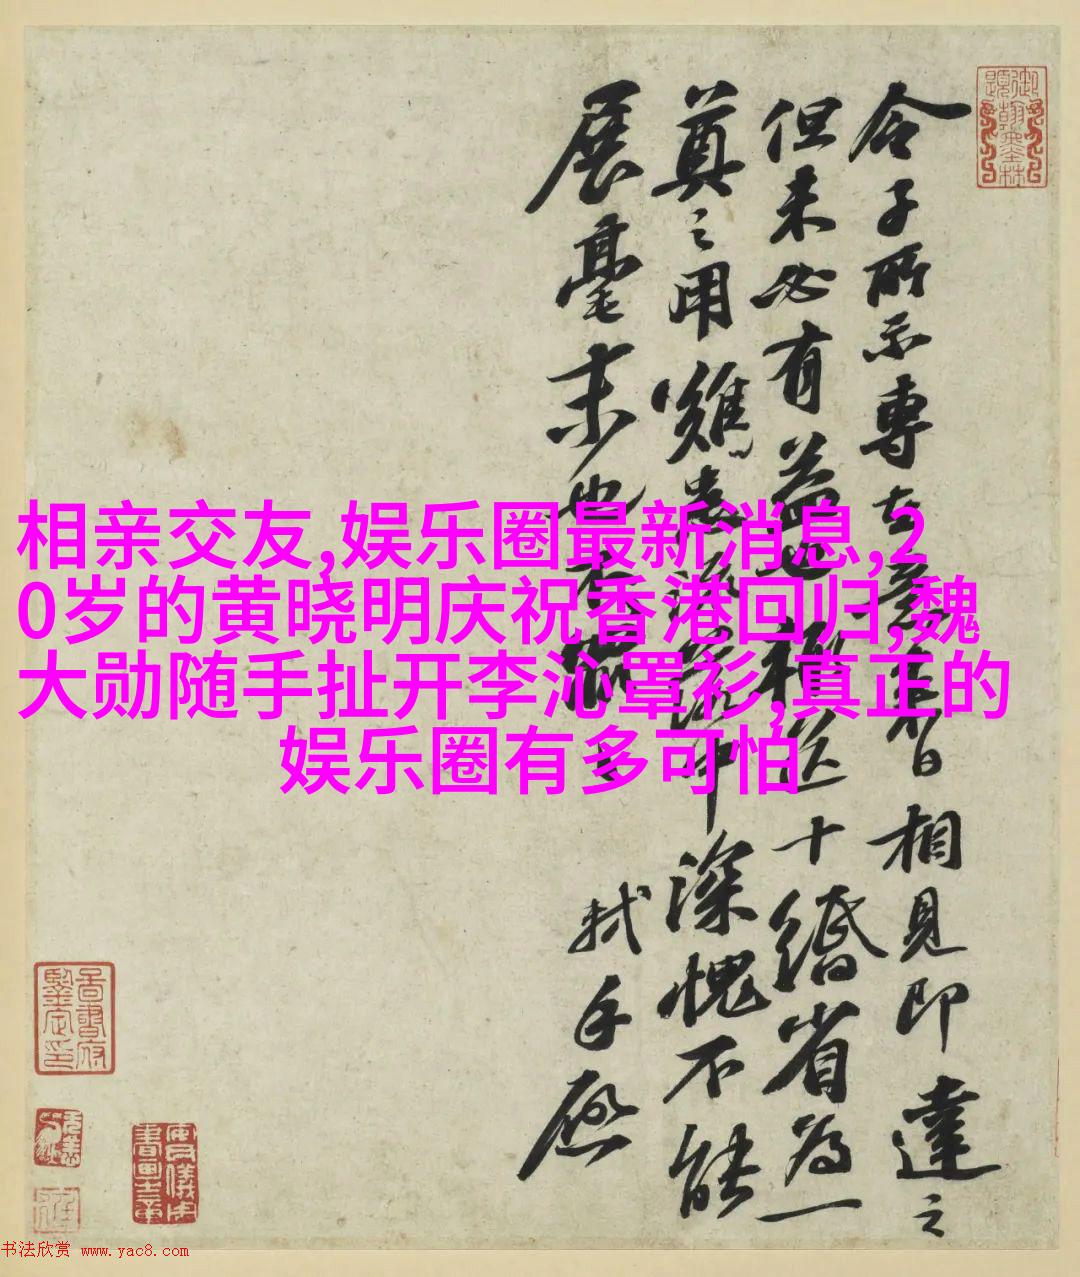 相亲交友,娱乐圈最新消息,2
0岁的黄晓明庆祝香港回归,魏
大勋随手扯开李沁罩衫,真正的
娱乐圈有多可怕
令子所示專在意來日相見即達之
但未必有益也輒送十縉省為一
奠之用難
深愧不能
展毫末也
軾手啟
书法欣赏 www.yac8.com